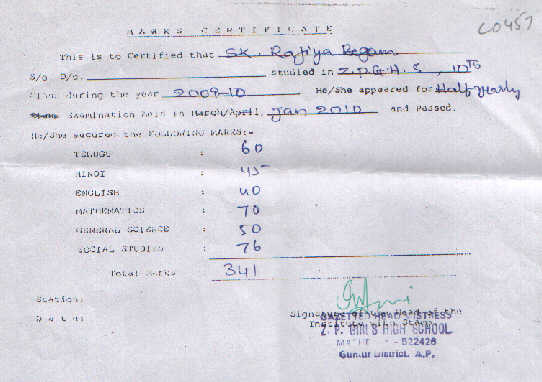 MARKS CERTIFICATE
C0457
This is to Certified that SK. Rajiya Begam
S/o D/o. studied in Z.P.G.H.S, 10th
Class during the year 2009-10 He/She appeared for Half-yearly
Examination held in March/April, Jan 2010 and Passed.
He/She secured the FOLLOWING MARKS:-
TELUGU : 60
HINDI : 45
ENGLISH : 40
MATHEMATICS : 70
GENERAL SCIENCE : 50
SOCIAL STUDIES : 76
Total Marks 341
Station:
Date:
Signature of the Head of the
Institute with Stamp
GAZETTED HEADMISTRESS
Z. P. GIRLS HIGH SCHOOL
522426
Guntur District. A.P.